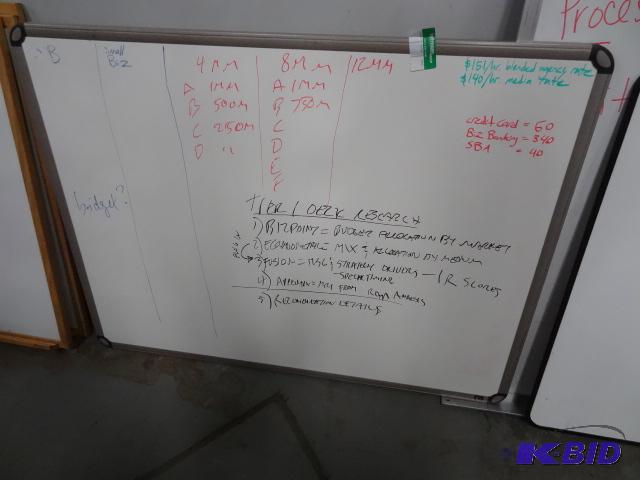 B
Small
Biz
4MM 8MM 12MM
A 1MM A 1MM
B 500M B 750M
C 250M C
D " D
E
F
$151/hr. blended agency rate
$140/hr. media rate
credit card = 60
Biz Banking = 340
SBA = 40
budget?
TIER 1 DECK RESEARCH
1) BIZPOINT = BUDGET ALLOCATION BY MARKET
2) ECONOMETRIC = MIX & ALLOCATION BY MEDIUM
3) FUSION = MSG; STRATEGIC DRIVERS - IR SCORES
4) FROM
5) RECOMMENDATION DETAILS
Proces
K-BID